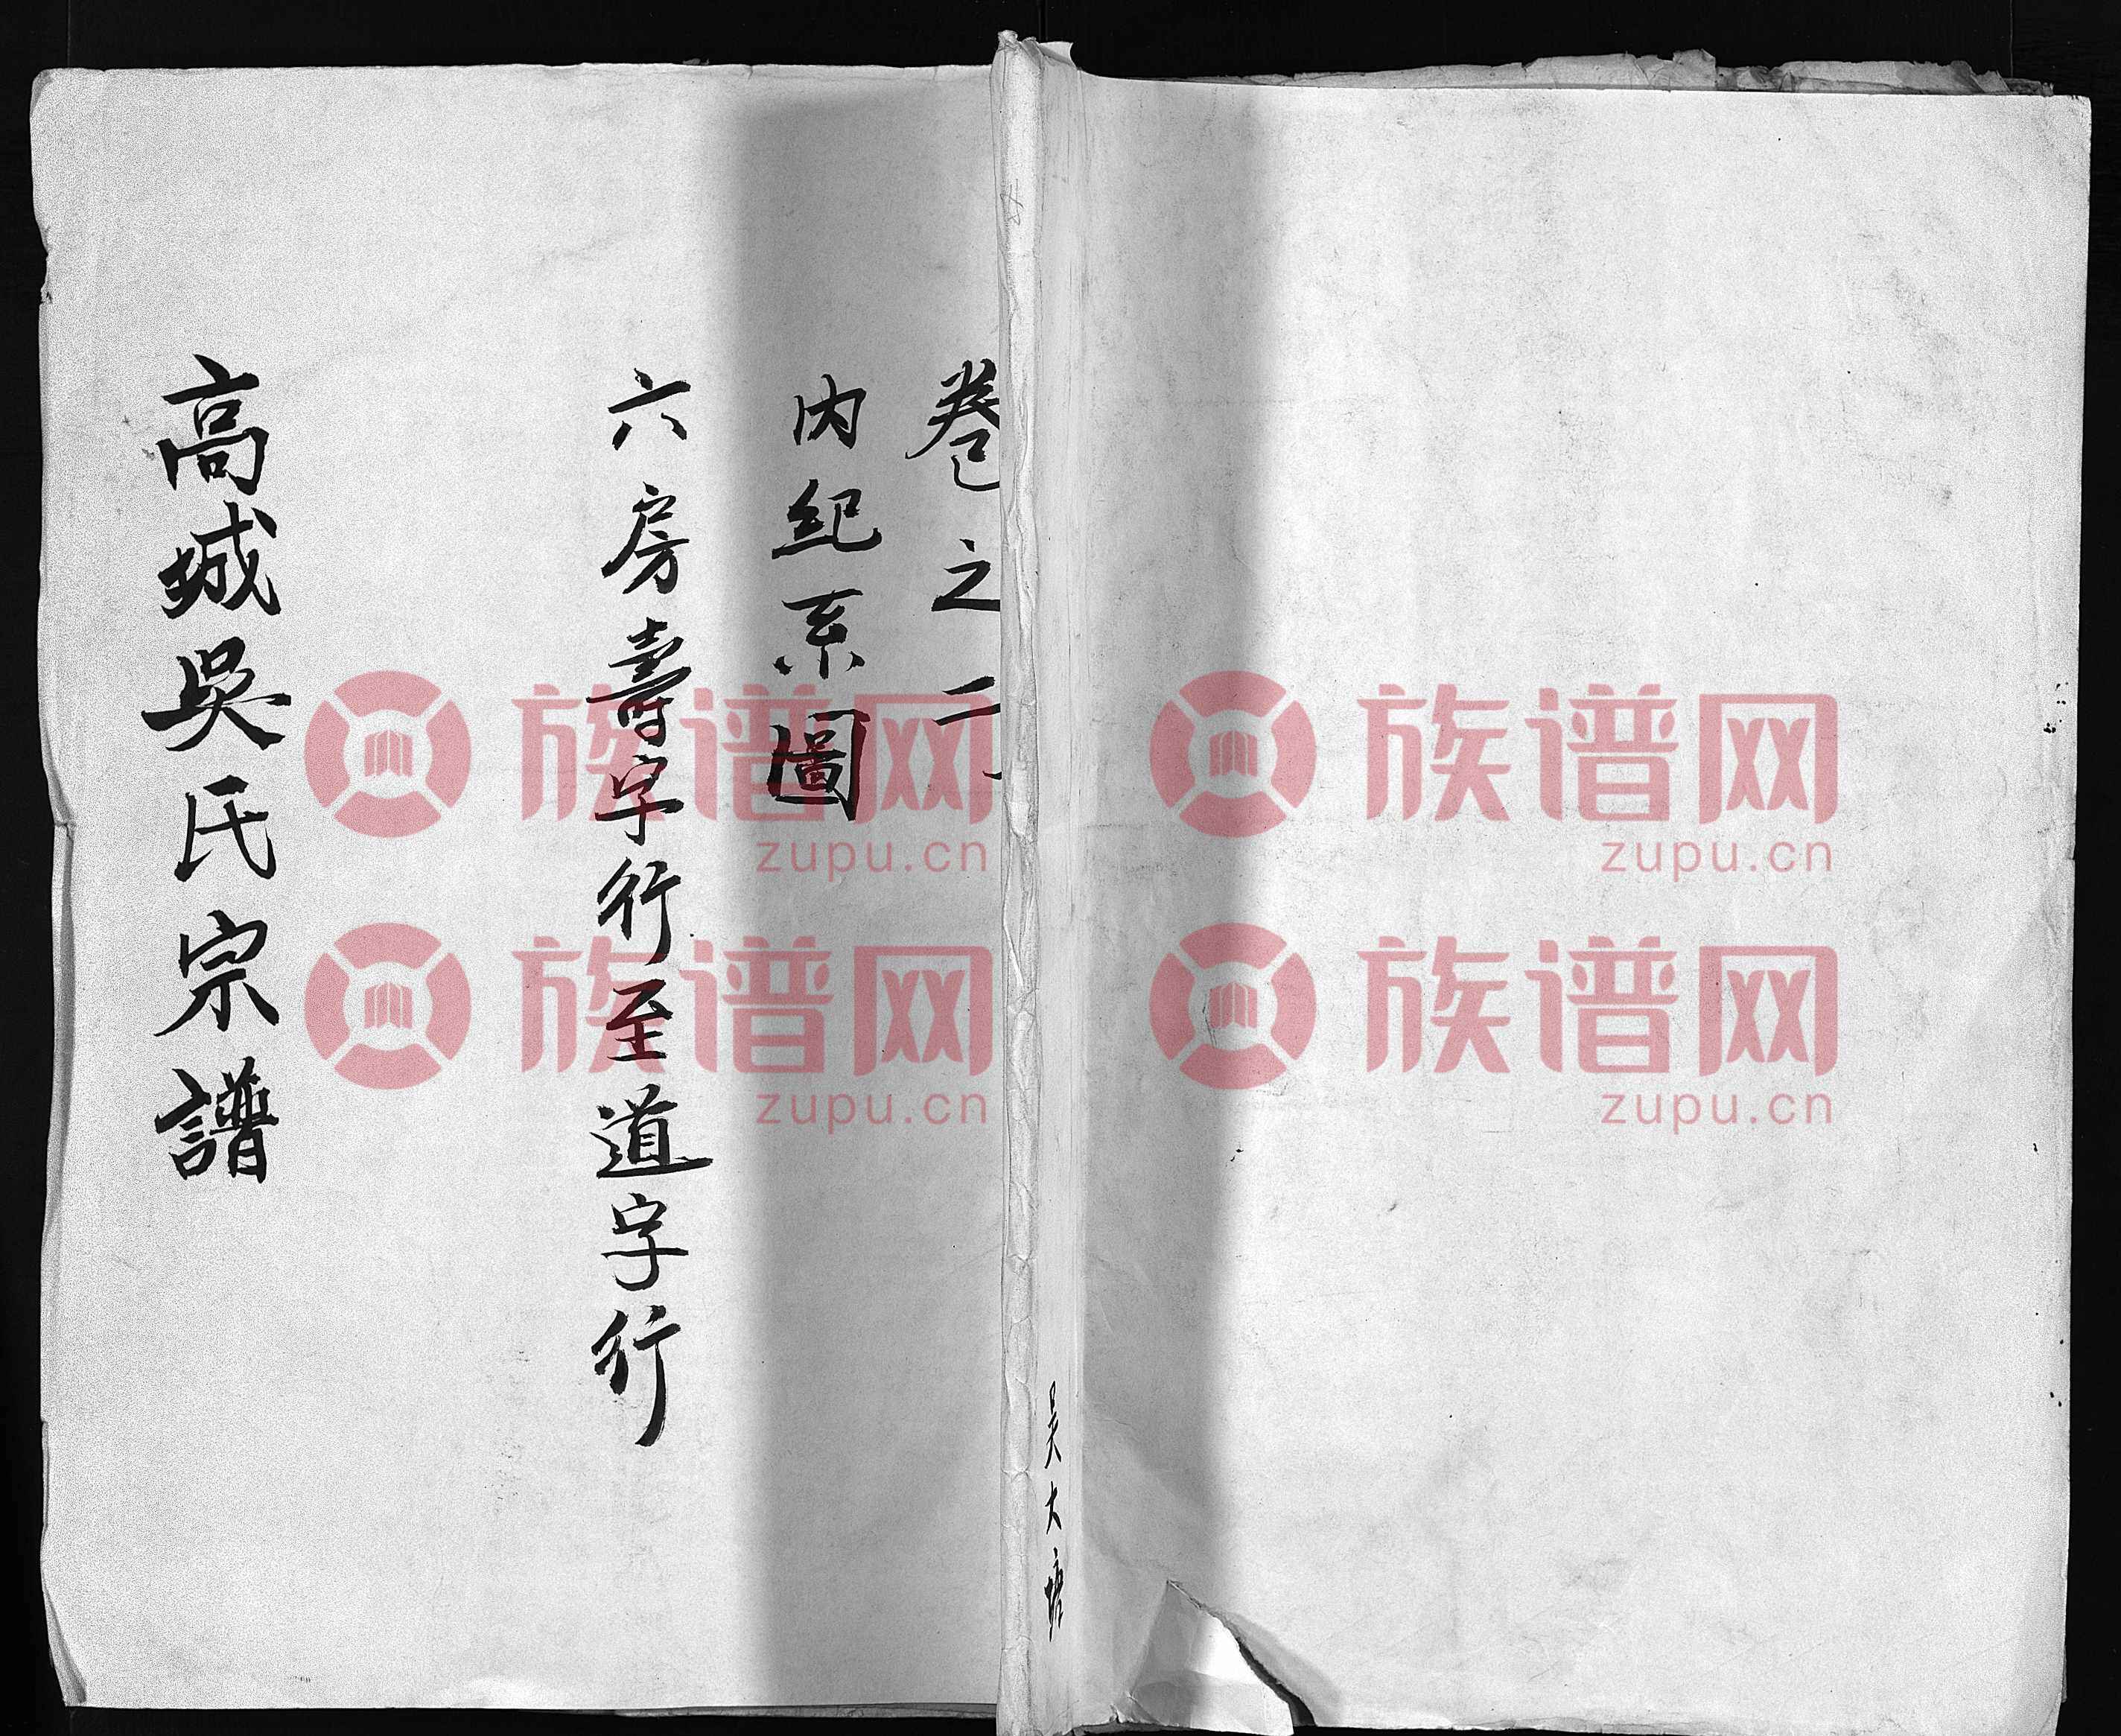 吴大塘
卷之二
内紀系圖
六房壽字行至道字行
高城吳氏宗譜
族谱网
zupu.cn
族谱网
zupu.cn
族谱网
zupu.cn
族谱网
zupu.cn